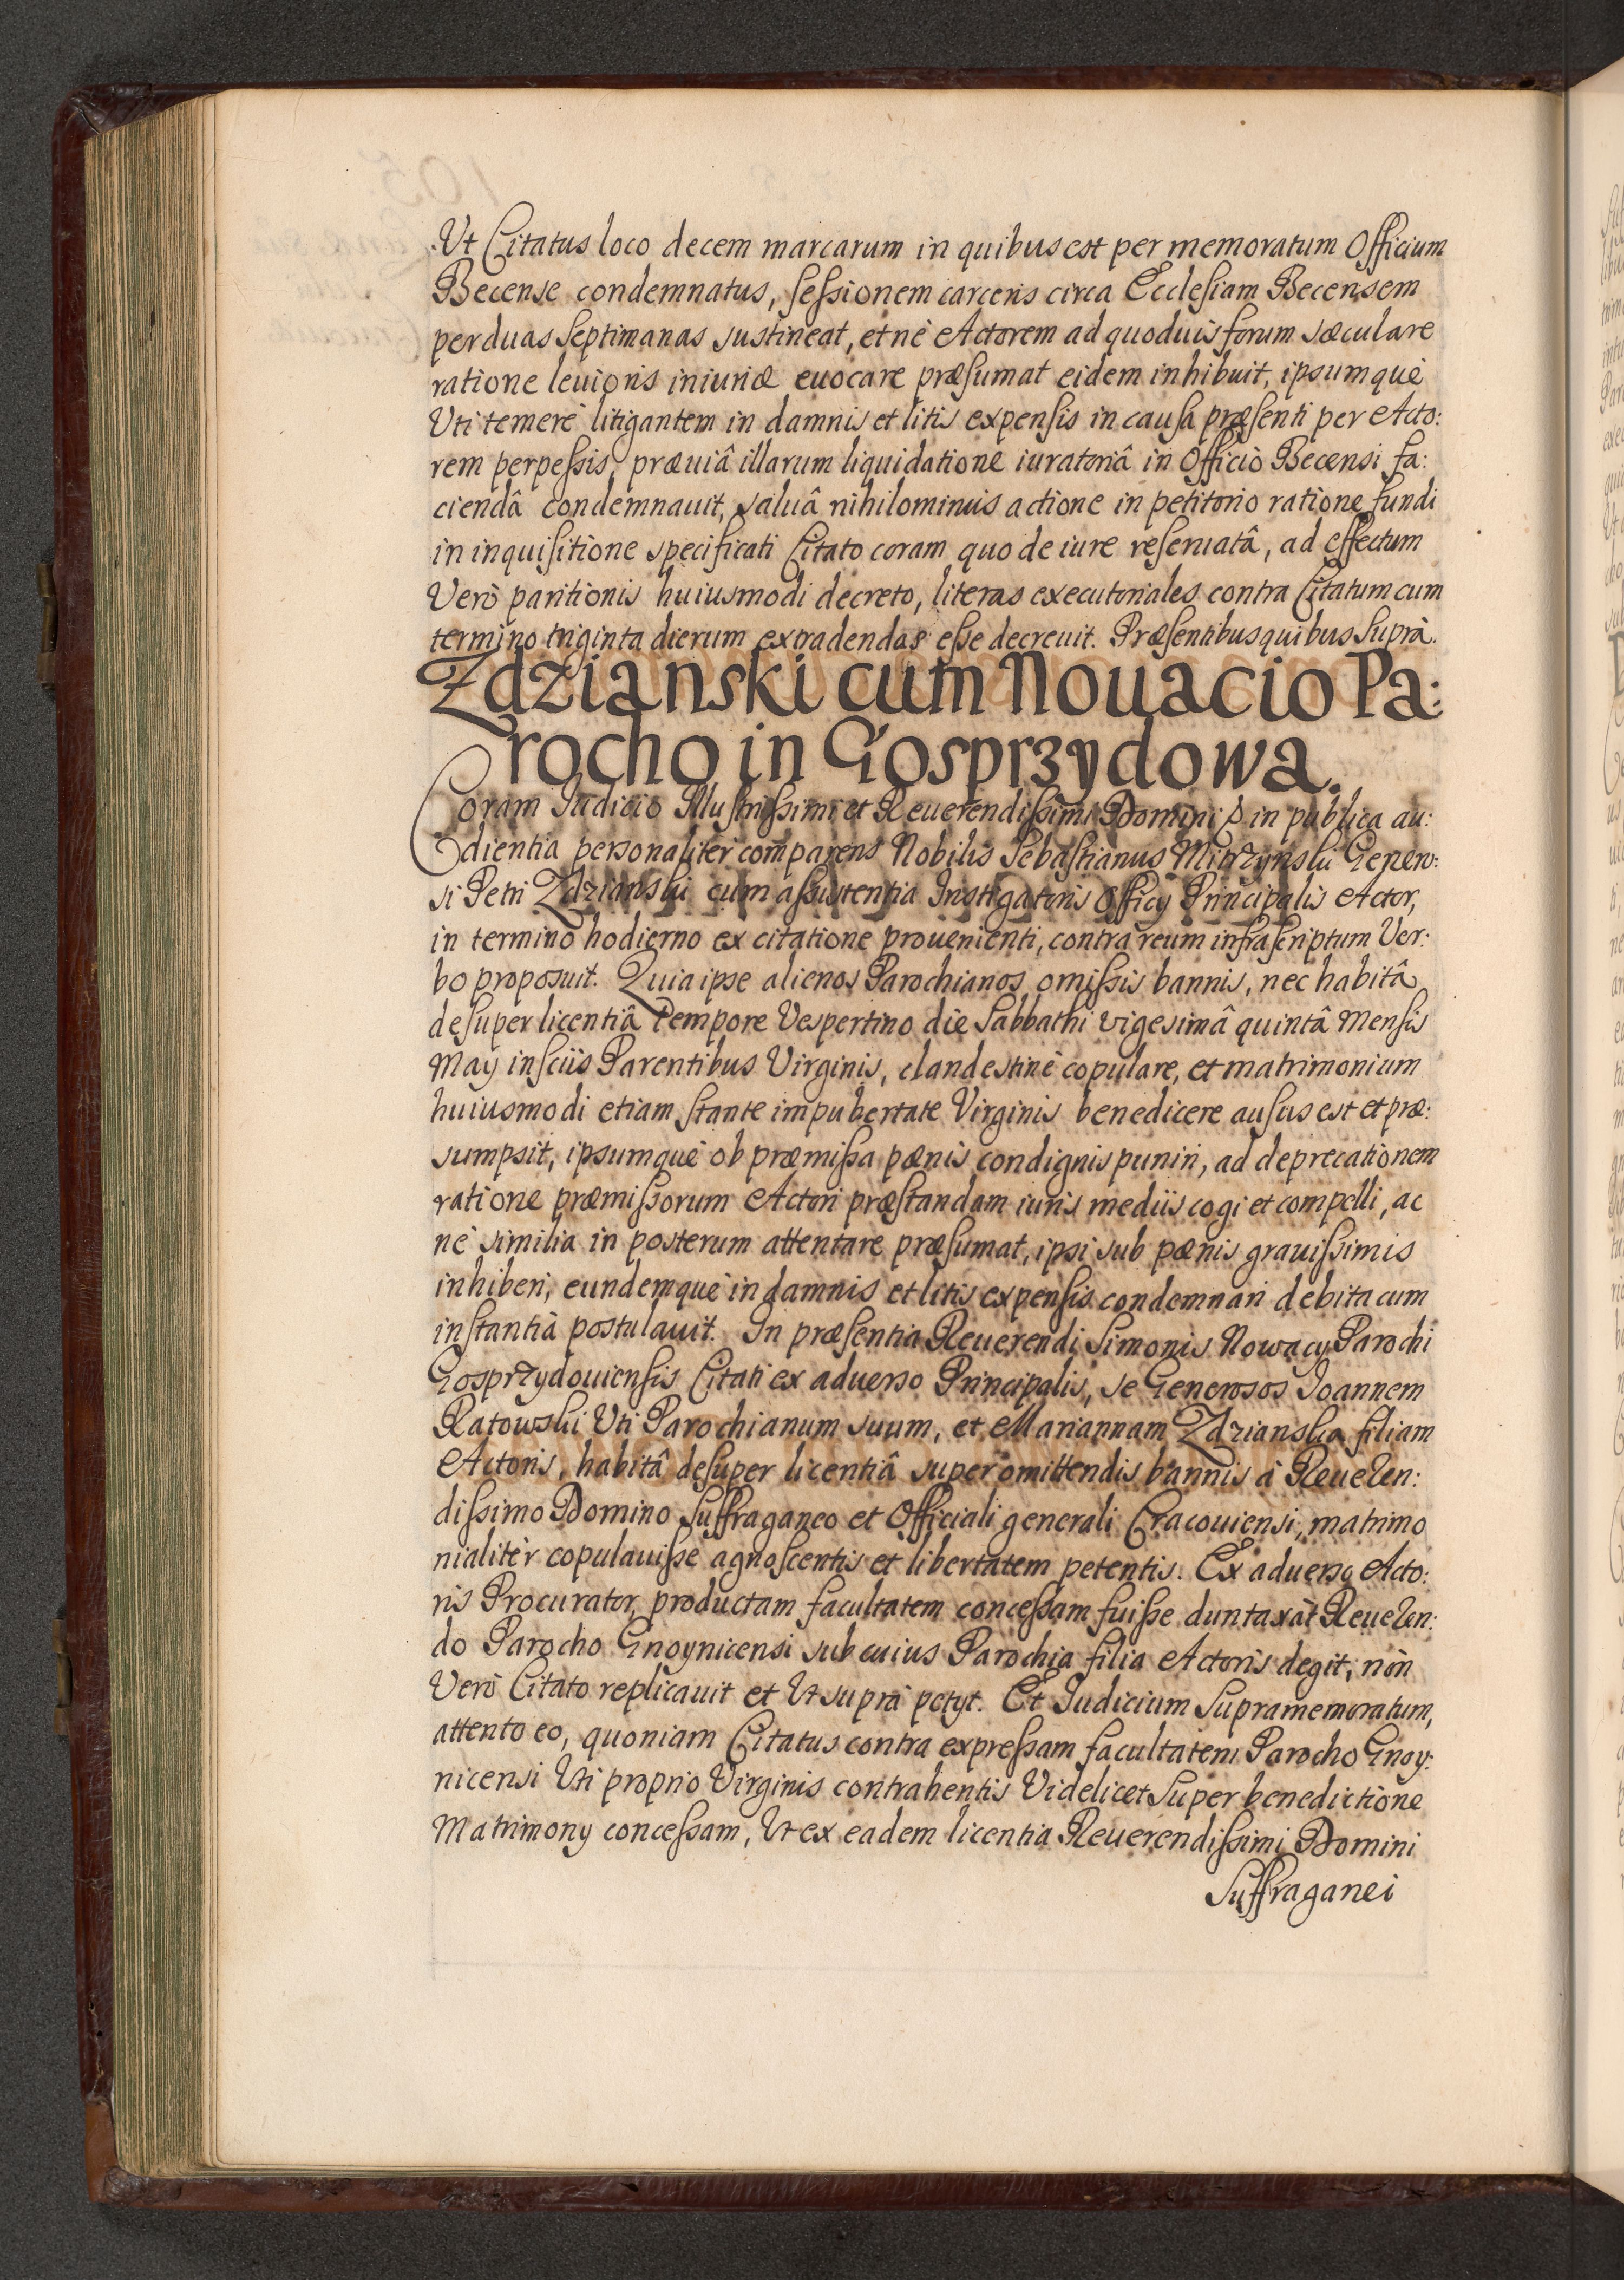 Ut Citatus loco decem marcarum in quibus est per memoratum Officium
Becense condemnatus, sessionem carceris circa Ecclesiam Becensem
per duas septimanas sustineat, et nè Actorem ad quoduis forum sæculare
ratione leuioris iniuriæ euocare præsumat eidem inhibuit, ipsumquè
Uti temerè litigantem in damnis et litis expensis in causa præsenti per Acto:
rem perpessis, præuiâ illarum liquidatione iuratoriâ in Officiò Becensi fa:
ciendâ condemnauit, saluâ nihilominus actione in petitorio ratione fundi
in inquisitione specificati Citato coram quo de iure reseruatâ, ad effectum
Verò paritionis huiusmodi decreto, literas executoriales contra Citatum cum
termino triginta dierum extradendas esse decreuit. Præsentibus quibus suprà.
Zdzianski cum Nouacio Pa:
rocho in Gosprzydowa.
Coram Iudicio Illustrissimi et Reuerendissimi Domini in publica au:
dientia personaliter comparens Nobilis Sebastianus Genero:
si Petri Zdzianski cum assistentia Instigatoris Officÿ Principalis Actor,
in termino hodierno ex citatione prouenienti, contra reum infrascriptum Ver:
bo proposuit. Quia ipse alienos Parochianos omissis bannis, nec habitâ
desuper licentiâ tempore Vespertino die Sabbathi vigesimâ quintâ Mensis
Maÿ insciis Parentibus Virginis, clandestinè copulare, et matrimonium
huiusmodi etiam stante impubertate Virginis benedicere ausus est et præ:
sumpsit, ipsumquè ob præmissa pænis condignis puniri, ad deprecationem
ratione præmissorum Actori præstandam iuris mediis cogi et compelli, ac
nè similia in posterum attentare præsumat, ipsi sub pænis grauissimis
inhiberi, eundemquè in damnis et litis expensis condemnari debita cum
instantià postulauit. In præsentia Reuerendi Simonis Nowacÿ Parochi
Gosprzydouiensis Citati ex aduerso Principalis, se Generosos Ioannem
Ratowski Uti Parochianum suum, et Mariannam Zdzianska filiam
Actoris, habitâ desuper licentiâ super omittendis bannis à Reueren:
dissimo Domino Suffraganeo et Officiali generali Cracouiensi, matrimo
nialitèr copulauisse agnoscentis et libertatem petentis. Ex aduerso Acto:
ris Procurator productam facultatem concessam fuisse duntaxàt Reueren:
do Parocho Gnoynicensi sub cuius Parochia filia Actoris degit, nòn
Verò Citato replicauit et Ut suprà petÿt. Et Iudicium supramemoratum,
attento eo, quoniam Citatus contra expressam facultatem Parocho Gnoy:
nicensi Uti proprio Virginis contrahentis Videlicet super benedictione
Matrimonÿ concessam, Ut ex eadem licentia Reuerendissimi Domini
Suffraganei